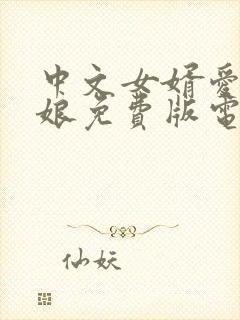 中文女婿爱
娘免费版电
仙妖